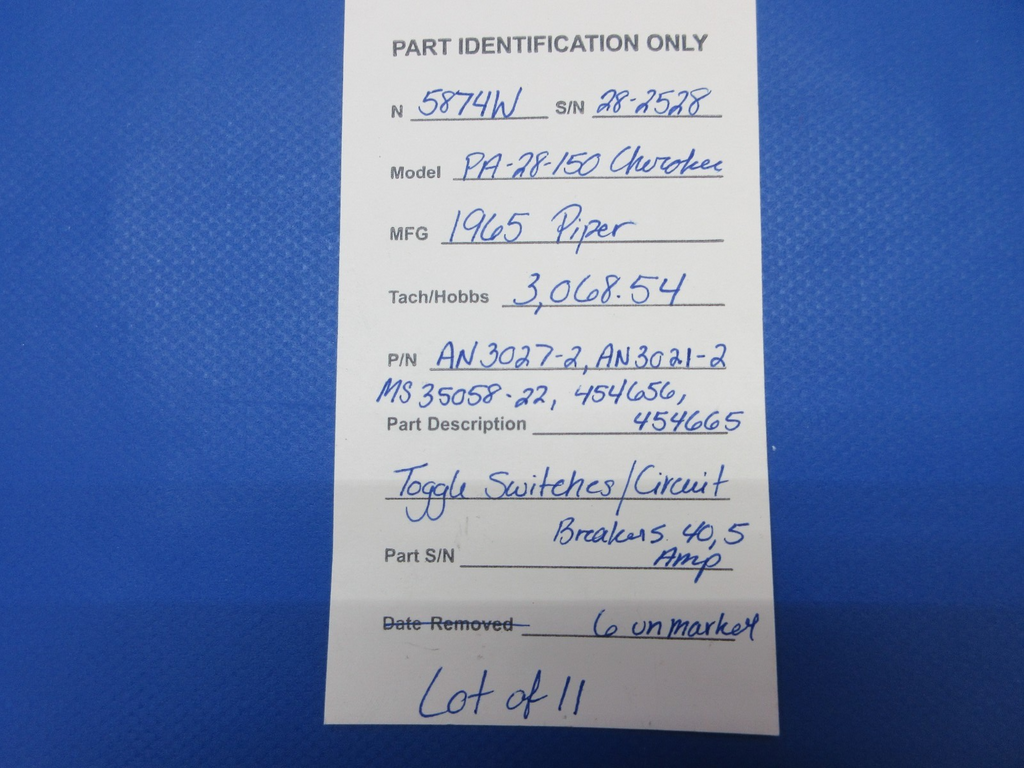 PART IDENTIFICATION ONLY
N 5874W S/N 28-2528
Model PA-28-150 Cherokee
MFG 1965 Piper
Tach/Hobbs 3,068.54
P/N AN3027-2, AN3021-2
MS35058-22, 454656,
Part Description 454665
Toggle Switches/Circuit
Breakers 40, 5
Part S/N Amp
Date Removed 6 unmarked
Lot of 11